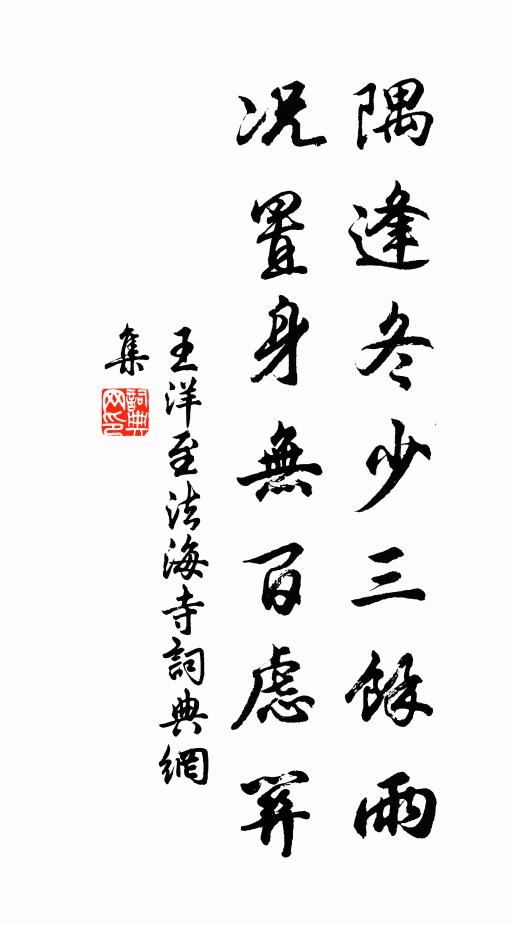 隅逢冬少三餘雨
况置身無百慮算
王洋至法海寺詞典網
集
詞典網印